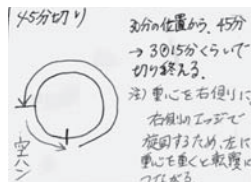 45分切り
30分の位置から、45分
→3①15分くらいで
切り終える。
注)重心を右側に
右側のエッジで
旋回するため、左に
重心を置くと転覆に
つながる
空ハン